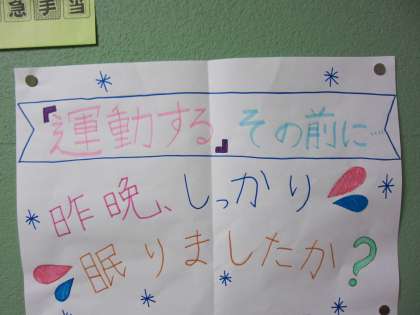 急手当
『運動する』その前に…
昨晩、しっかり
眠りましたか?